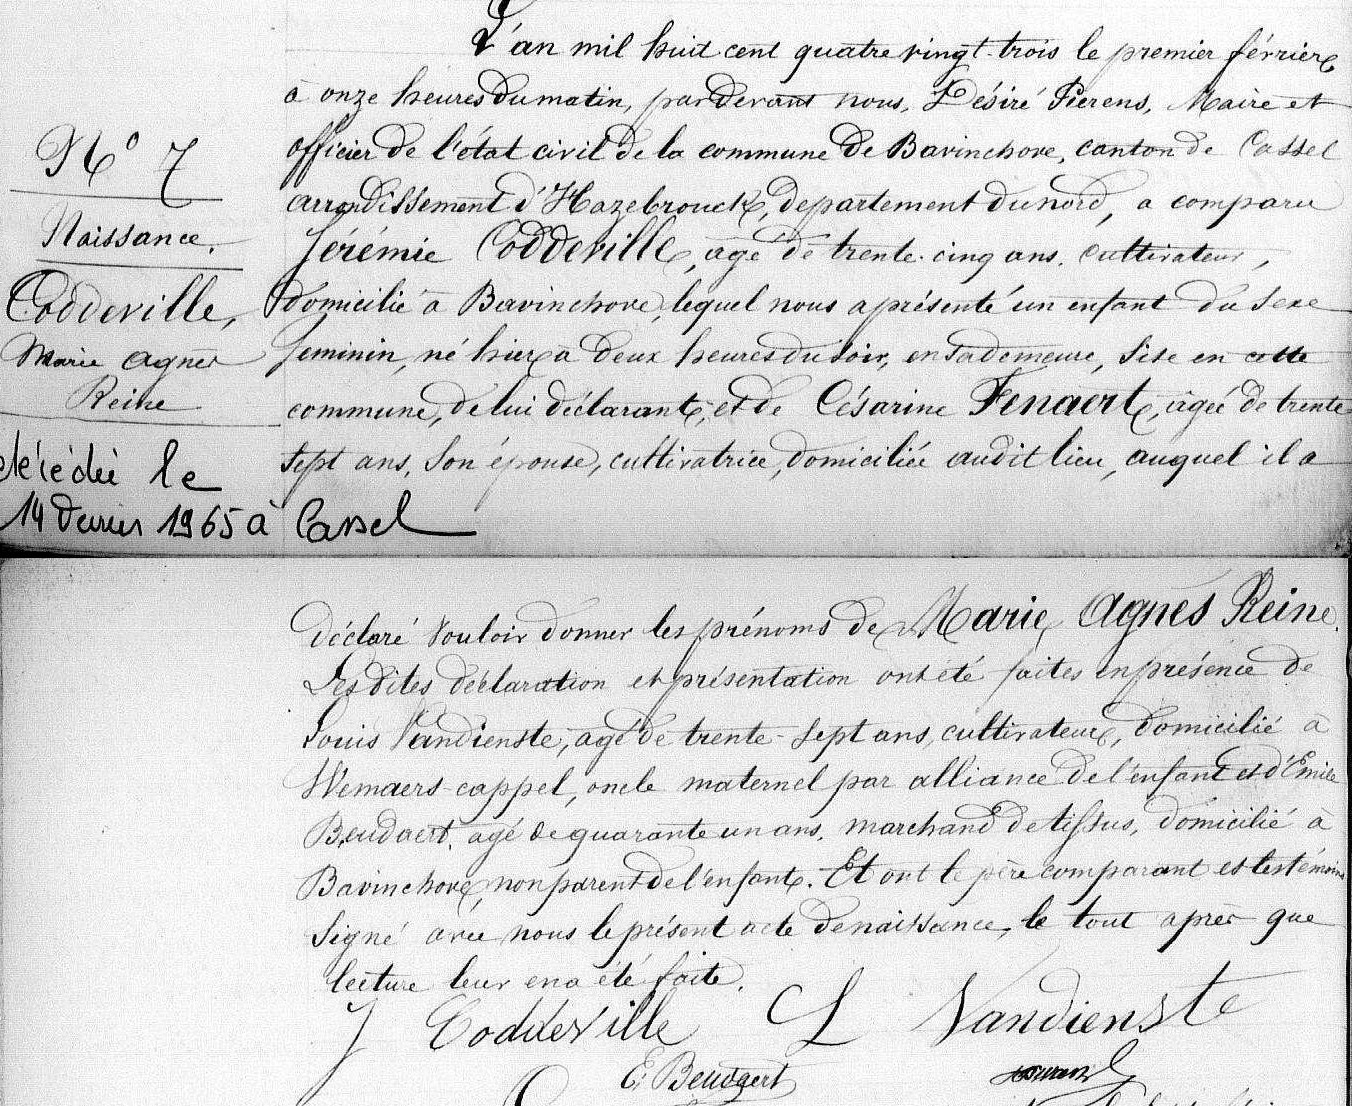 N° 7
Naissance.
Coddeville,
Marie Agnès
Reine
décédée le
14 1965 à Cassel
L'an mil huit cent quatre vingt-trois le premier février
à onze heures du matin, par devant nous, Désiré Pierens, Maire et
officier de l'état civil de la commune de Bavinchove, canton de Cassel
arrondissement d'Hazebrouck, departement du nord, a comparu
Jérémie Coddeville, agé de trente-cinq ans, cultivateur,
domicilié à Bavinchove, lequel nous a présenté un enfant du sexe
feminin, né hier à deux heures du soir, en sa demeure, sise en cette
commune, de lui déclarant, et de Césarine Fenaert, âgée de trente
sept ans, son épouse, cultivatrice, domiciliée audit lieu, auquel il a
déclaré vouloir donner les prénoms de Marie Agnès Reine.
Les dites déclaration et présentation ont été faites en présence de
Louis Vandienste, agé de trente-sept ans, cultivateur, domicilié à
Wemaers-cappel, oncle maternel par alliance de l'enfant et d'Emile
Beudaert, agé de quarante un ans, marchand de tissus, domicilié à
Bavinchove, non parent de l'enfant. Et ont le père comparant et les témoins
signé avec nous le présent acte de naissance, le tout après que
lecture leur en a été faite.
J Coddeville L Vandienste
E. Beudaert